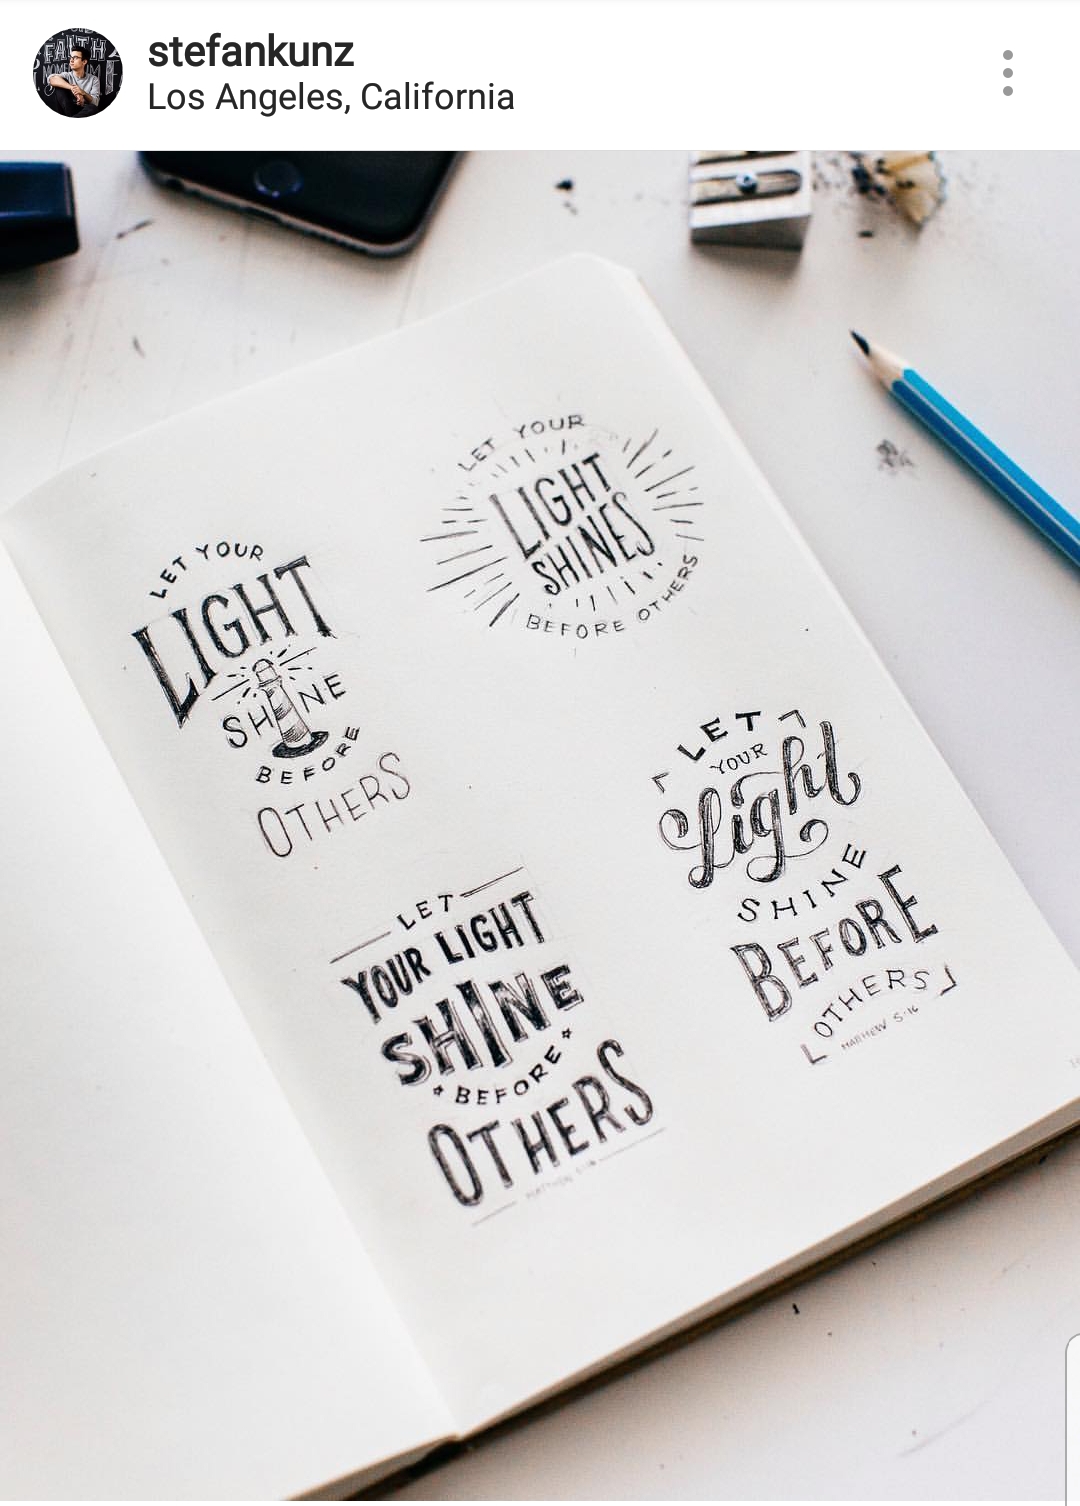 stefankunz
Los Angeles, California
LET YOUR
LIGHT
SHINES
BEFORE OTHERS
LET YOUR
LIGHT
SHINE
BEFORE
OTHERS
LET
YOUR
Light
SHINE
BEFORE
OTHERS
MATTHEW 5:16
LET
YOUR LIGHT
SHINE
BEFORE
OTHERS